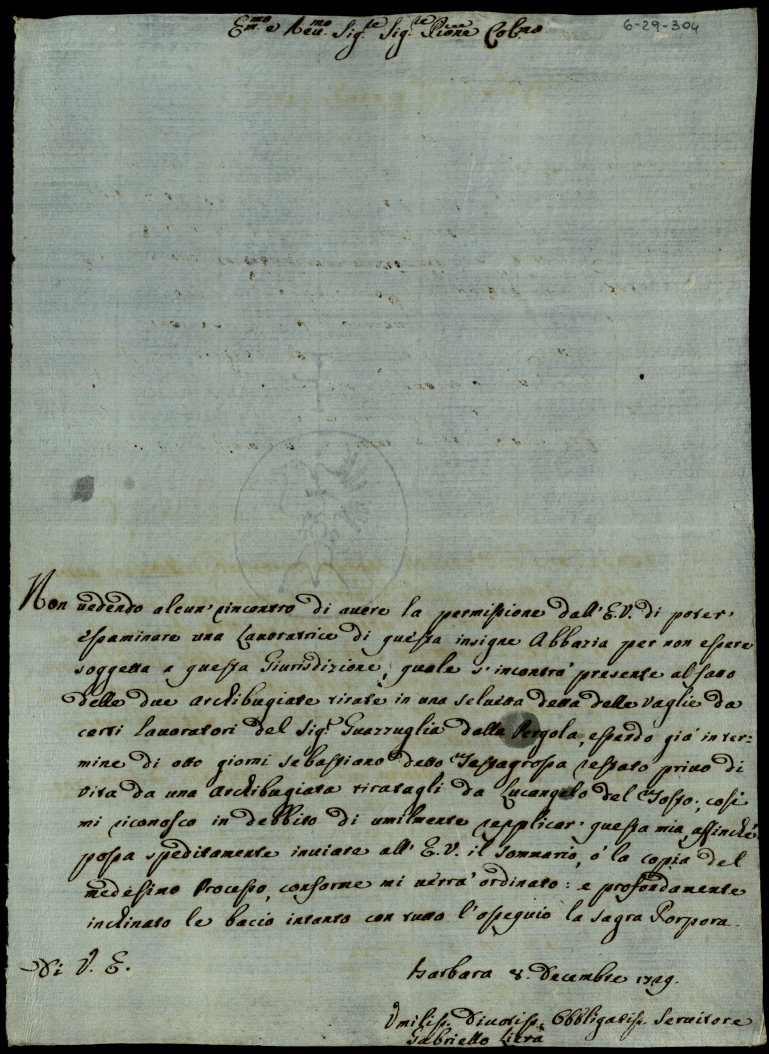 Em.mo e Reu.mo Sig.re Sig.re Pne Colmo
6-29-304
Non uedendo alcun' rincontro di auere la permissione dall' E. V. di poter'
essaminare una Lauoratrice di questa insigne Abbazia per non essere
soggetta a questa Giurisdizione, quale s' incontrò presente al fatto
delle due archibugiate tirate in una seluetta detta delle Vaglie da
certi Lauoratori del Sig.r Guazzuglia dalla Pergola, essendo già in ter-
mine di otto giorni Sebastiano detto Testagrossa restato priuo di
vita da una archibugiata tiratagli da Lucangelo del Tosto; così
mi riconosco in debbito di umilmente repplicar' questa mia, affinché
possa speditamente inuiare all' E. V. il Sommario, ò la copia del
medesimo Processo, conforme mi uerrà ordinato: e profondamente
inchinato le bacio intanto con tutto l' ossequio la Sagra Porpora.
Di V. E.
Barbara 8. Decembre 1729.
Vmiliss. Diuotiss. Obbligatiss. Seruitore
Gabriello